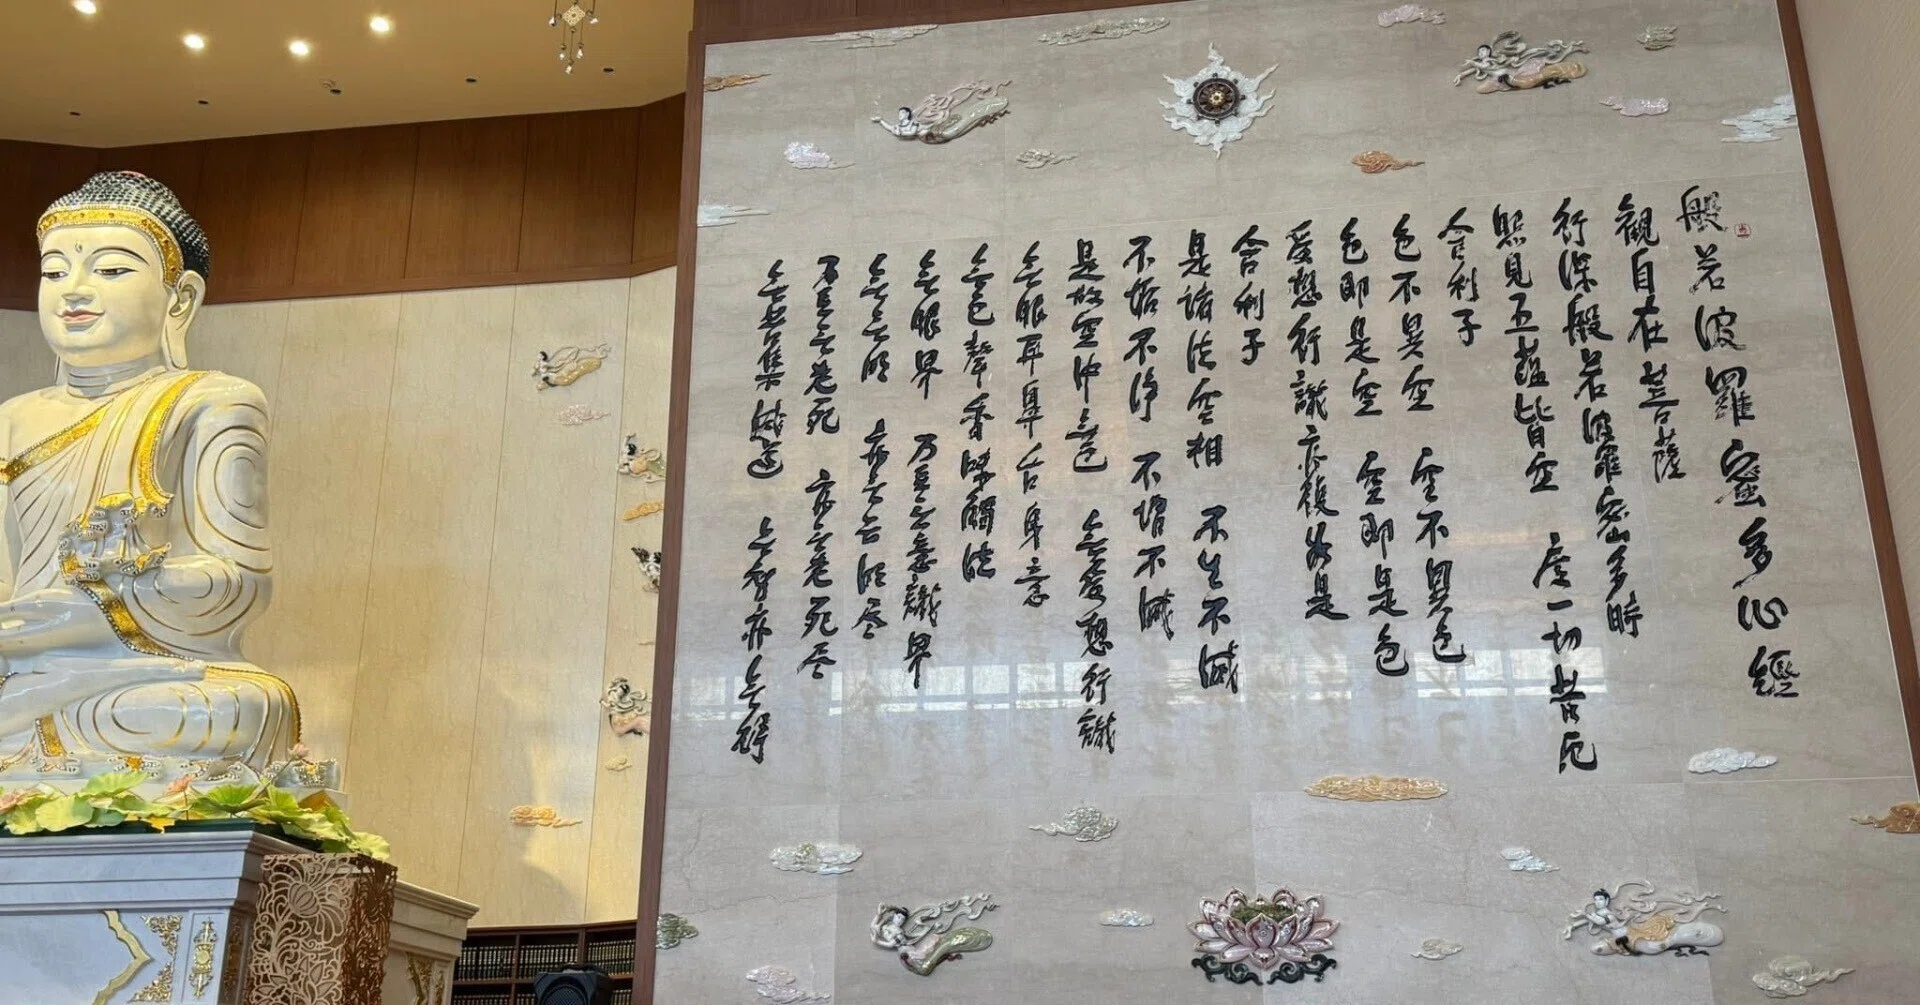 般若波羅蜜多心經
觀自在菩薩
行深般若波羅蜜多時
照見五蘊皆空 度一切苦厄
舍利子
色不異空 空不異色
色即是空 空即是色
受想行識亦復如是
舍利子
是諸法空相 不生不滅
不垢不淨 不增不減
是故空中無色 無受想行識
無眼耳鼻舌身意
無色聲香味觸法
無眼界 乃至無意識界
無無明 亦無無明尽
乃至無老死 亦無老死尽
無苦集滅道 無智亦無得